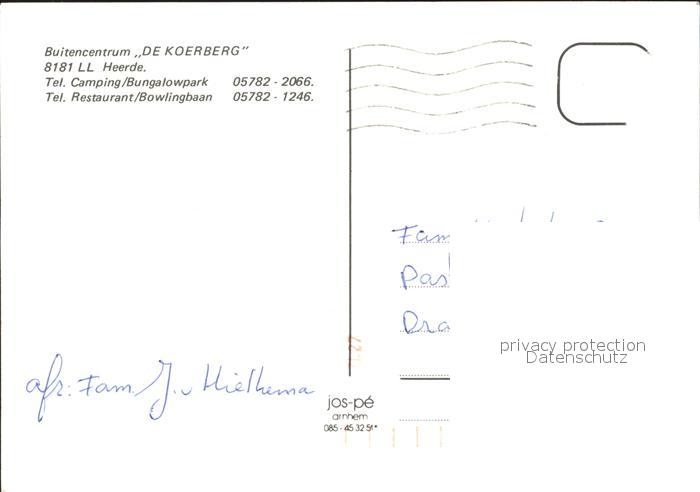 Buitencentrum ,,DE KOERBERG"
8181 LL Heerde.
Tel. Camping/Bungalowpark 05782 - 2066.
Tel. Restaurant/Bowlingbaan 05782 - 1246.
Fam
Pas
Dra
privacy protection
Datenschutz
afz: Fam. J. v Mielhema
jos-pé
arnhem
085 - 45 32 51*